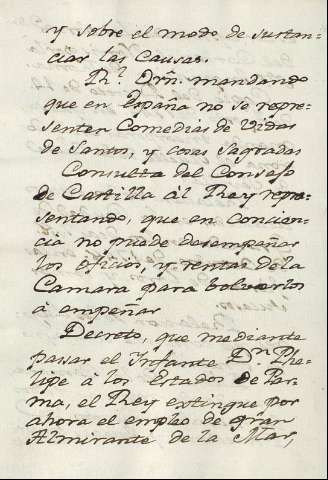 y sobre el modo de sustan-
ciar las Causas.
Rl. Orn. mandando
que en España no se repre-
senten Comedias de Vidas
de Santos, y cosas sagradas
Consulta del Consejo
de Castilla àl Rey repre-
sentando, que en concien-
cia no puede desempeñar
los oficios, y rentas de la
Camara para bolverlos
à empeñar
Decreto, que mediante
pasar el Infante Dn. Phe-
lipe à los Estados de Par-
ma, el Rey extingue por
ahora el empleo de gran
Almirante de la Mar,